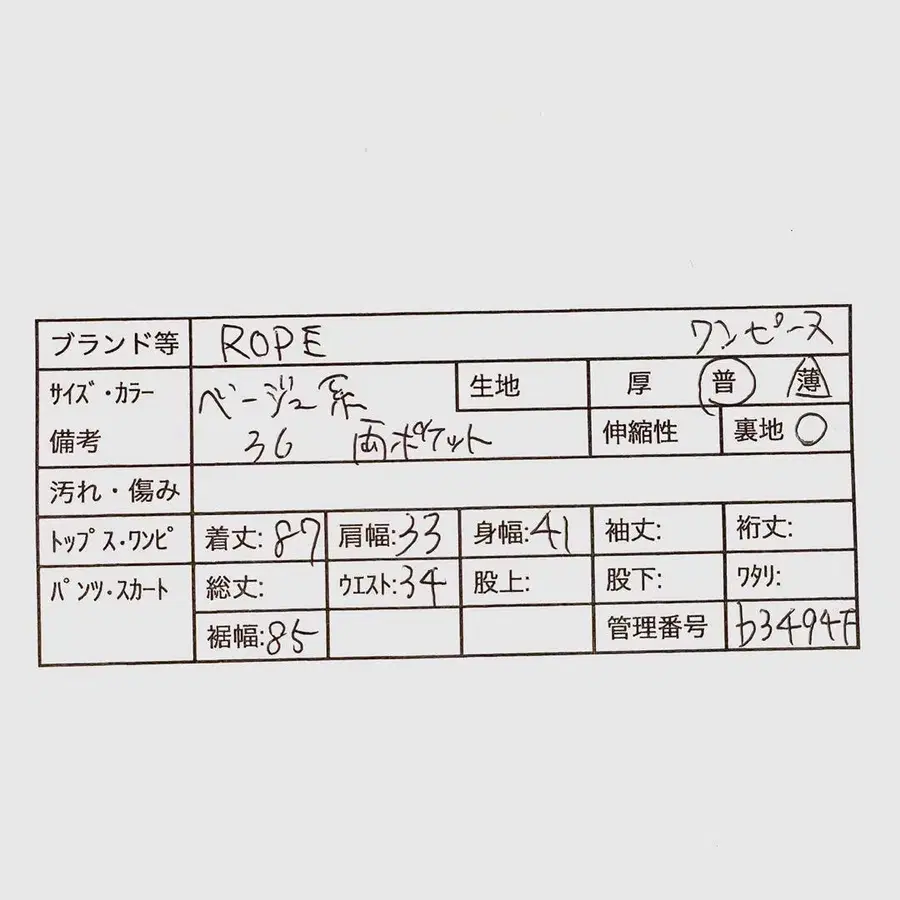 ブランド等 ROPE ワンピース
サイズ・カラー ベージュ系 生地 厚 普 薄
備考 36 両ポケット 伸縮性 裏地 ○
汚れ・傷み
トップス・ワンピ 着丈:87 肩幅:33 身幅:41 袖丈: 裄丈:
パンツ・スカート 総丈: ウエスト:34 股上: 股下: ワタリ:
裾幅:85 管理番号 b3494F